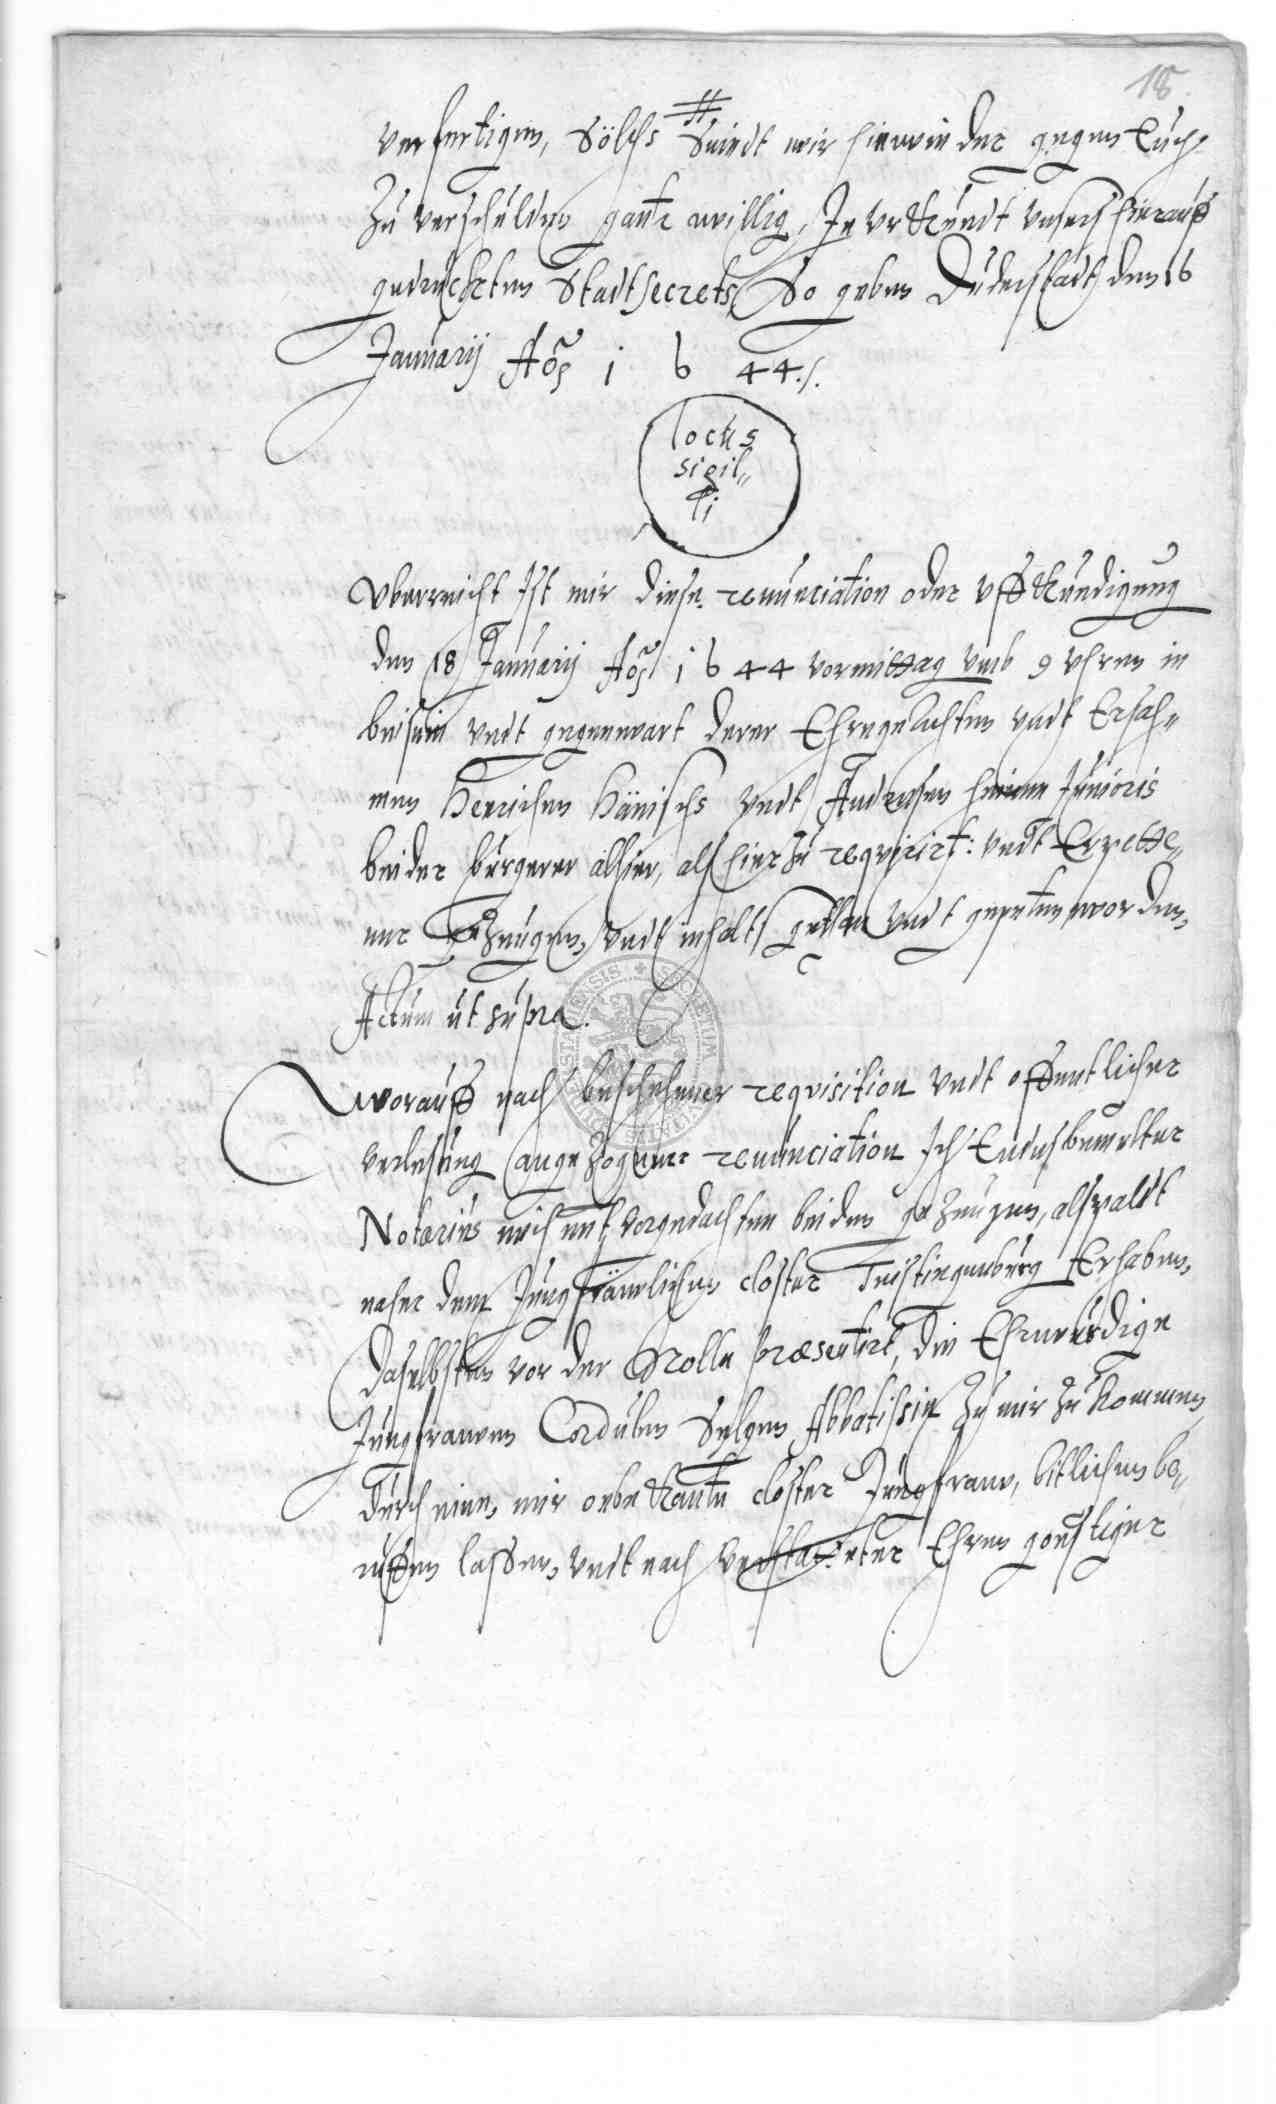 18.
verfertigen, Sölchs Seindt wir hinwinder gegen Euch
zu verschulden gantz willig, In Urkundt unsers hierauff
gedruckten Stadtsecrets So geben Duderstadt den 16
Januarij Aõ 1 6 44./.
locus
sigil„
li
Uberreicht Ist mir diese renunciation oder Uffkundigung
den 18 Januarij Aõ 1 6 44 vormittag umb 9 Uhren in
beisein undt gegenwart derer Ehrngeachten undt Ersah„
men Henrichen Hänischs undt Andresen Junioris
beider bürgerer alhier, als hierzu requirirt: undt Erpette„
ner Gezeugen, undt inhalts gethan undt gepeten worden,
Actum ut supra.
Worauff nach beschehener requisition undt offentlicher
verlesung angezogener renunciation Ich Endesbemelter
Notarius mich mit vorgedachten beiden gezeugen, alspaldt
naher dem Jungfräwlichen closter Teistingenburg Erhaben,
Daselbsten vor der Rolle præsentirt, die Ehrwürdige
Jungfrawen Cordulen Abbatissin zu mir zu kommen
Durch eine, mir onbekante closter Jungfraw, bitlichen be„
ruffen lassen, undt nach Ehren gönstiger
SECRETUM